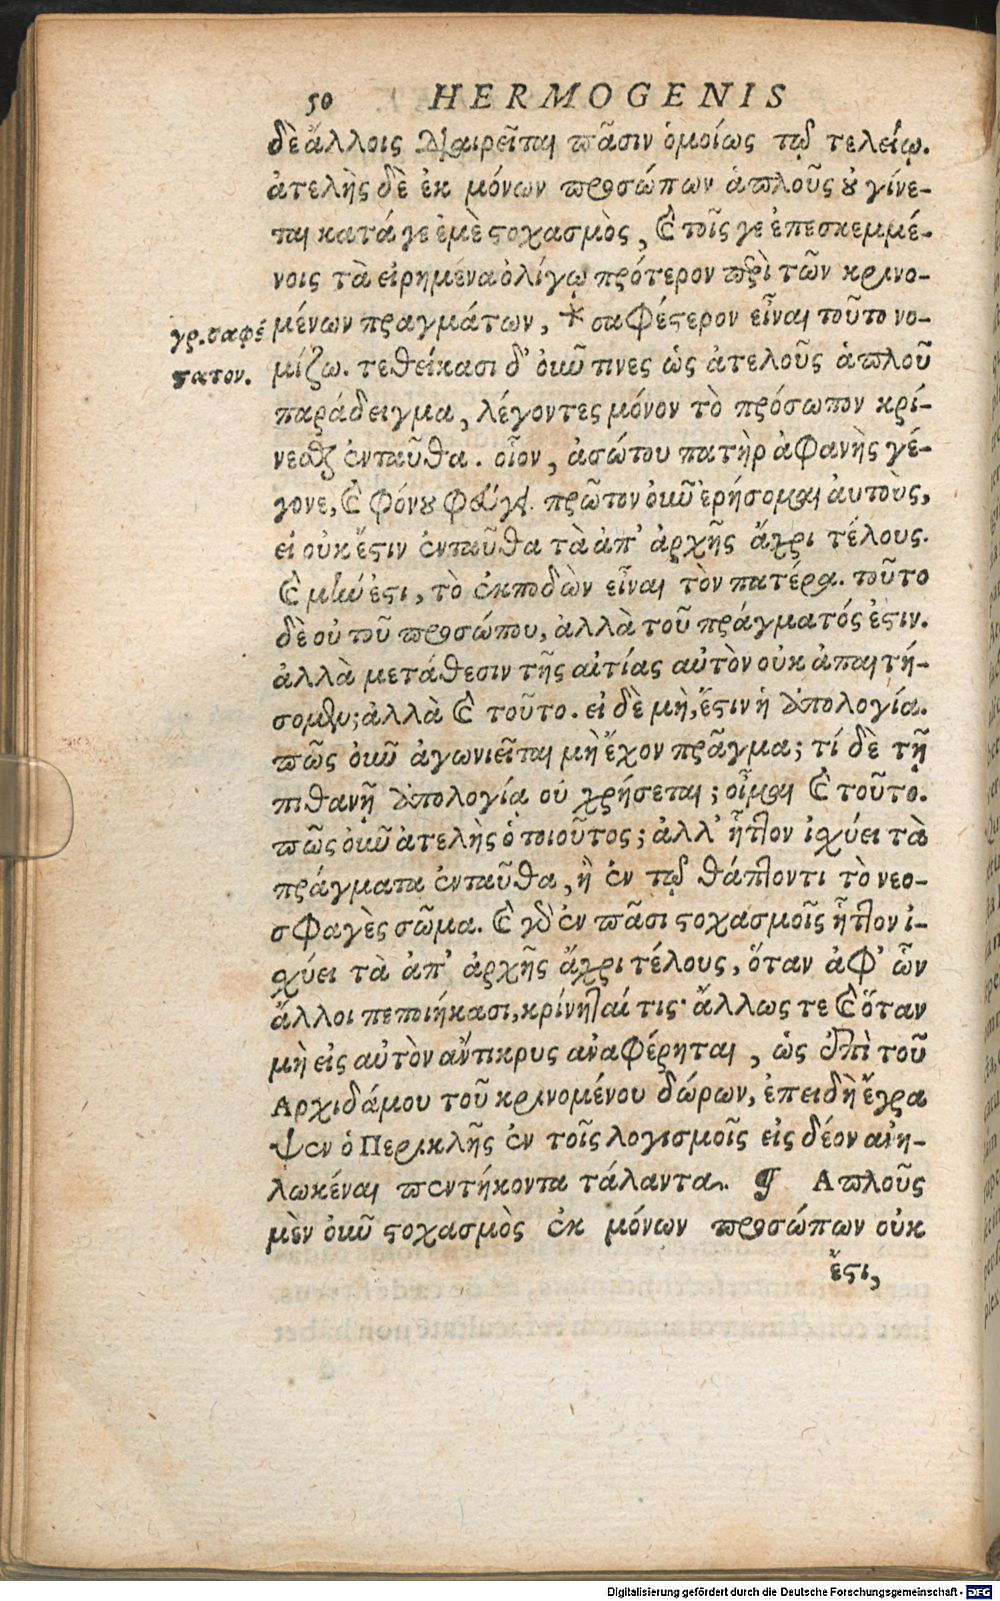 50 HERMOGENIS
δὲ ἄλλοις διαιρεῖται πᾶσιν ὁμοίως τῷ τελείῳ.
ἀτελὴς δὲ ἐκ μόνων προσώπων ἁπλοῦς οὐ γίνε-
ται κατά γε ἐμὲ στοχασμὸς, καὶ τοῖς γε ἐπεσκεμμέ-
νοις τὰ εἰρημένα ὀλίγῳ πρότερον περὶ τῶν κρινο-
μένων πραγμάτων, * σαφέστερον εἶναι τοῦτο νο-
γρ. σαφέ
στατον.
μίζω. τεθείκασι δ' οὖν τινες ὡς ἀτελοῦς ἁπλοῦ
παράδειγμα, λέγοντες μόνον τὸ πρόσωπον κρί-
νεσθαι ἐνταῦθα. οἷον, ἀσώτου πατὴρ ἀφανὴς γέ-
γονε, καὶ φόνου φεύγει. πρῶτον οὖν ἐρήσομαι αὐτοὺς,
εἰ οὐκ ἔστιν ἐνταῦθα τὰ ἀπ' ἀρχῆς ἄχρι τέλους.
καὶ μὴν ἔστι, τὸ ἐκποδὼν εἶναι τὸν πατέρα. τοῦτο
δὲ οὐ τοῦ προσώπου, ἀλλὰ τοῦ πράγματός ἐστιν.
ἀλλὰ μετάθεσιν τῆς αἰτίας αὐτὸν οὐκ ἀπαιτή-
σομεν; ἀλλὰ καὶ τοῦτο. εἰ δὲ μὴ, ἔστιν ἡ ἀπολογία.
πῶς οὖν ἀγωνιεῖται μὴ ἔχον πρᾶγμα; τί δὲ τῇ
πιθανῇ ἀπολογίᾳ οὐ χρήσεται; οἶμαι καὶ τοῦτο.
πῶς οὖν ἀτελὴς ὁ τοιοῦτος; ἀλλ' ἧττον ἰσχύει τὰ
πράγματα ἐνταῦθα, ἢ ἐν τῷ θάπτοντι τὸ νεο-
σφαγὲς σῶμα. καὶ γὰρ ἐν πᾶσι στοχασμοῖς ἧττον ἰ-
σχύει τὰ ἀπ' ἀρχῆς ἄχρι τέλους, ὅταν ἀφ' ὧν
ἄλλοι πεποιήκασι, κρίνηταί τις· ἄλλως τε καὶ ὅταν
μὴ εἰς αὐτὸν ἄντικρυς ἀναφέρηται, ὡς ἐπὶ τοῦ
Αρχιδάμου τοῦ κρινομένου δώρων, ἐπειδὴ ἔγρα
ψεν ὁ Περικλῆς ἐν τοῖς λογισμοῖς εἰς δέον ἀνη-
λωκέναι πεντήκοντα τάλαντα. ¶ Απλοῦς
μὲν οὖν στοχασμὸς ἐκ μόνων προσώπων οὐκ
ἔστι,
Digitalisierung gefördert durch die Deutsche Forschungsgemeinschaft - DFG